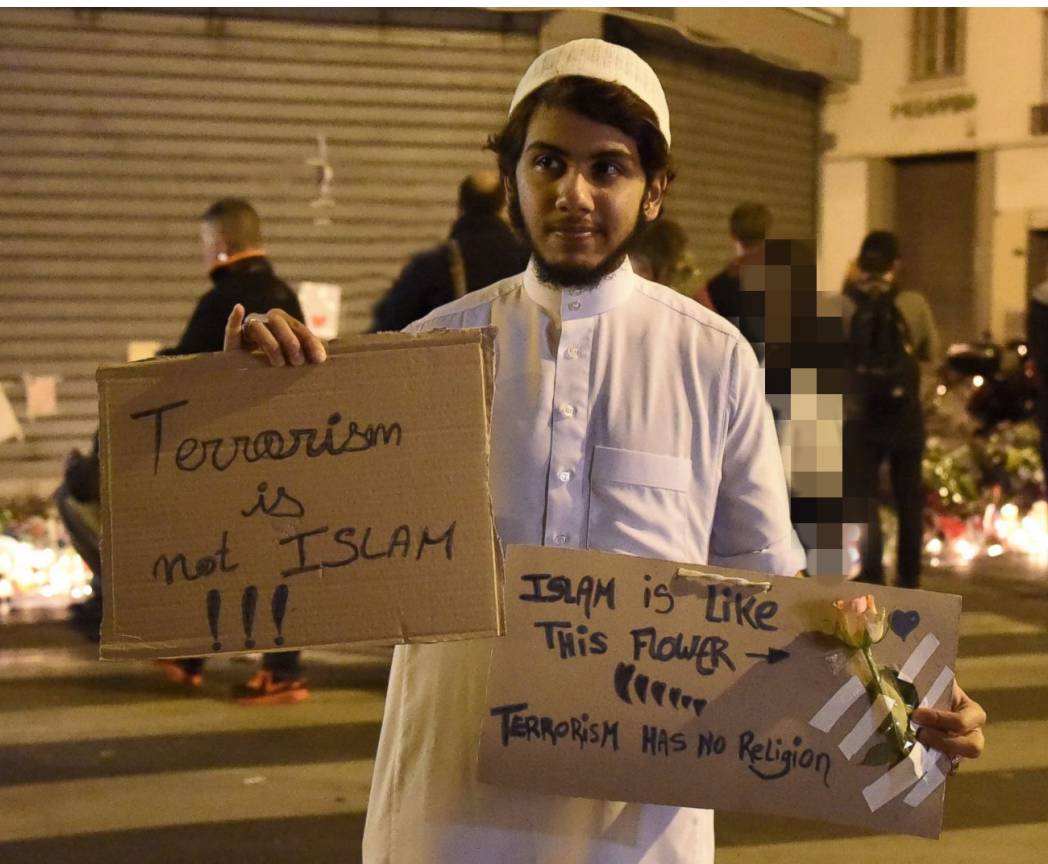 Terrorism
is
not ISLAM
!!!
ISLAM is like
THiS FLOWER →
TERRORiSM HAS NO Religion